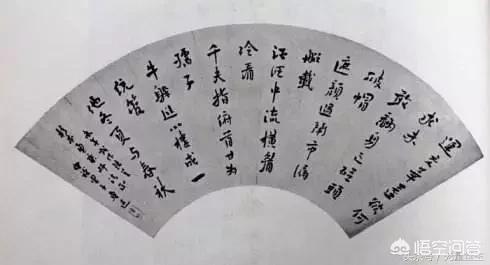 運交華蓋欲何
求未
敢翻身已碰頭
破帽
遮顏過鬧市漏
船載
酒泛中流橫眉
冷看
千夫指俯首甘为
孺子
牛躲進小樓成一
统管
他冬夏与春秋
悟空问答